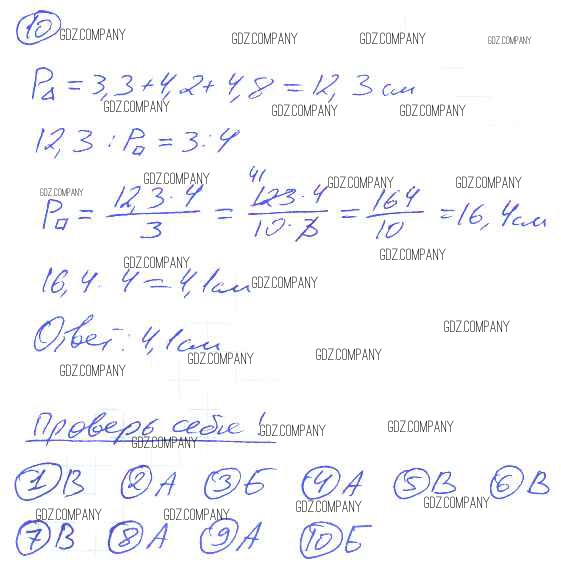 10 GDZ.COMPANY GDZ.COMPANY GDZ.COMPANY GDZ.COMPANY
P△ = 3,3+4,2+4,8 = 12,3 см
GDZ.COMPANY GDZ.COMPANY GDZ.COMPANY
12,3 : P□ = 3:4
GDZ.COMPANY GDZ.COMPANY GDZ.COMPANY GDZ.COMPANY
P□ = 12,3·4/3 = 41 123·4/10·3 = 164/10 = 16,4 см
GDZ.COMPANY GDZ.COMPANY
16,4 · 4 = 4,1 см GDZ.COMPANY
Ответ: 4,1 см GDZ.COMPANY
GDZ.COMPANY GDZ.COMPANY GDZ.COMPANY
Проверь себя! GDZ.COMPANY GDZ.COMPANY
GDZ.COMPANY
1 В 2 А 3 Б 4 А 5 В 6 В
GDZ.COMPANY GDZ.COMPANY GDZ.COMPANY GDZ.COMPANY
7 В 8 А 9 А 10 Б